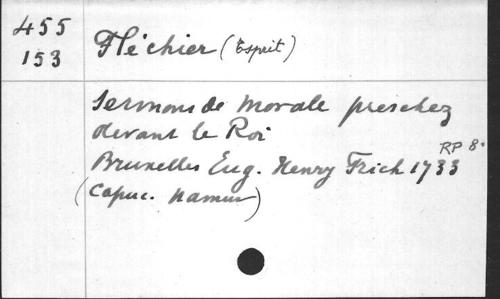 455
153
Fléchier (Esprit)
Sermons de Morale preschez
devant le Roi
RP 8°
Bruxelles Eug. Henry Frick 1733
(Capuc. Namur)